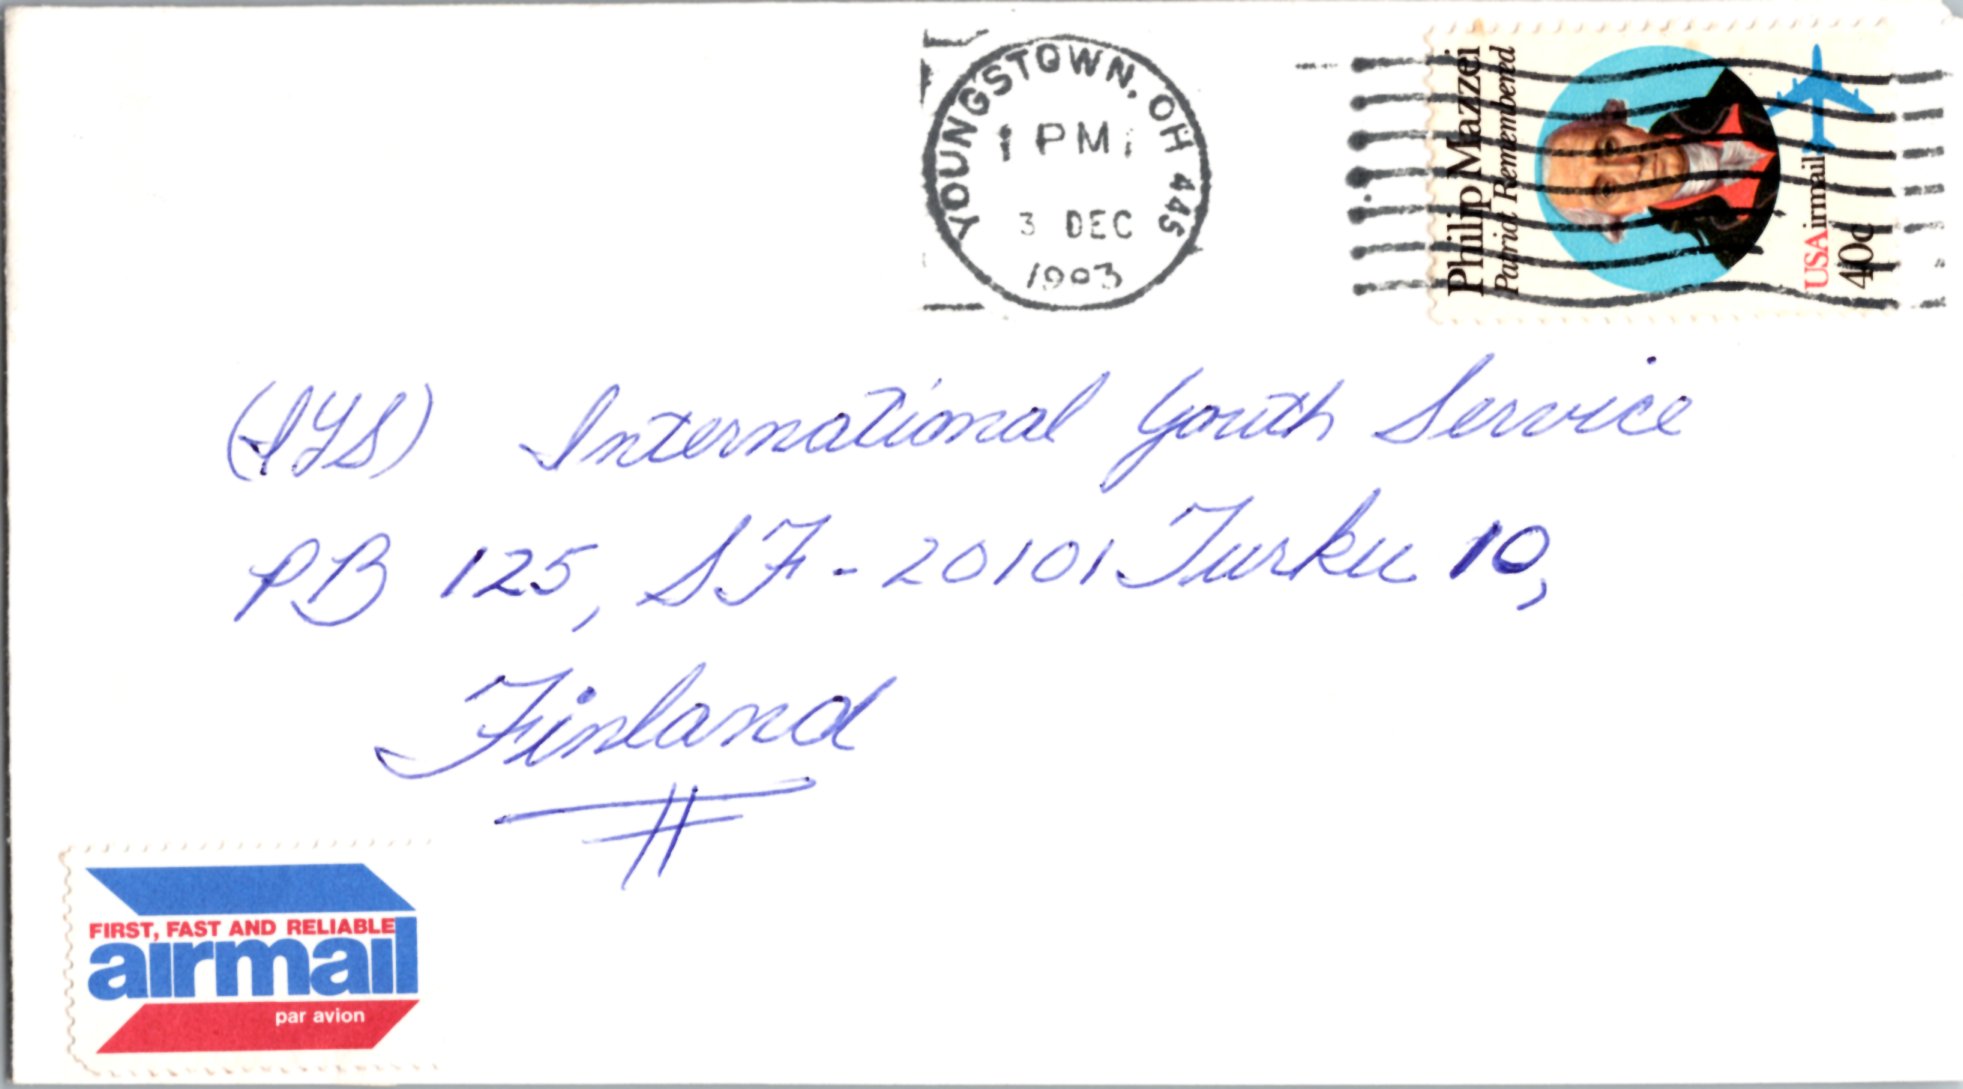 YOUNGSTOWN, OH 445
1 PM
3 DEC
1983
Philip Mazzei
Patriot Remembered
USAirmail
40c
(IYS) International Youth Service
PB 125, SF - 20101 Turku 10,
Finland
FIRST, FAST AND RELIABLE
airmail
par avion